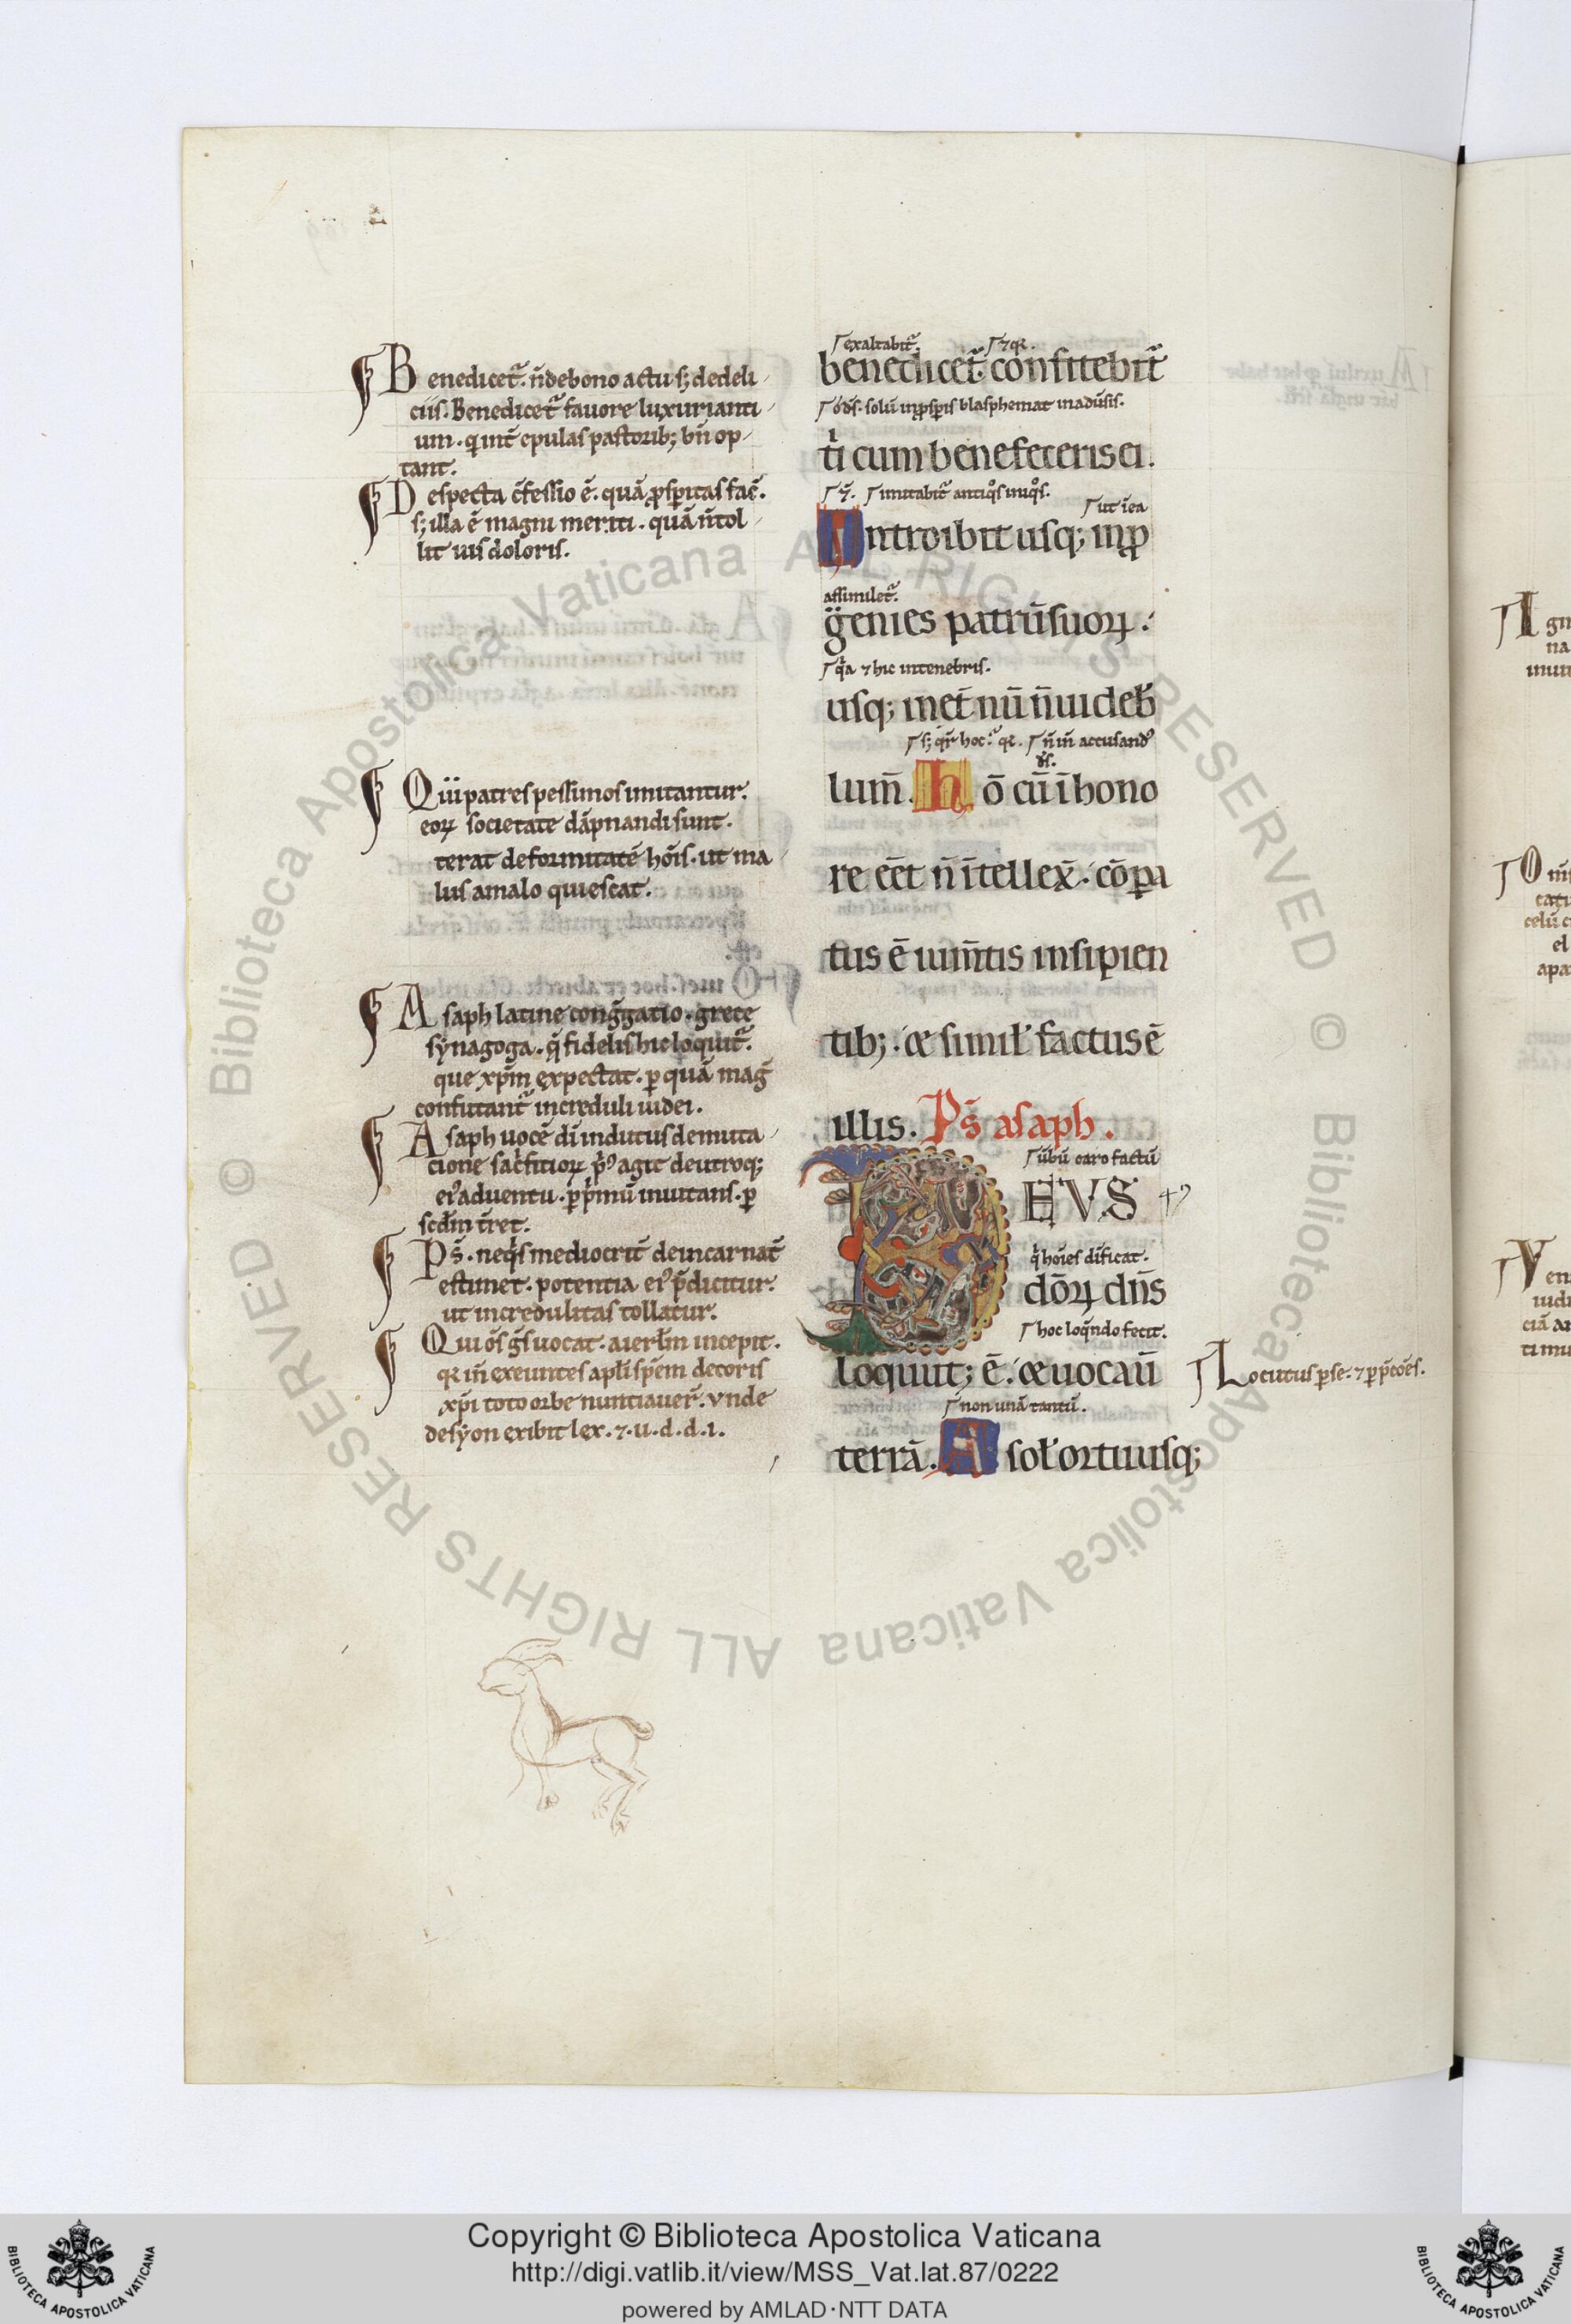 Benedicet᷑. n̄ de bono actu s; de deli
ciis. Benedicet᷑ fauore luxurianti
um. q̇ int̄ epulas pastorib; bn̄ op
tant.
Despecta c̄fessio ē. quā ꝓsꝑitas fac̄.
s; illa ē magni meriti. quā n̄ tol
lit uis doloris.
Qui patres pessimos imitantur.
eoꝝ societate dāpnandi sunt.
terat deformitatē hoīs. ut ma
lus a malo quiescat.
Asaph latine cong̃gatio. grece
synagoga. q̄ fidelis hic loquit᷑.
que xp̄m expectat. ꝑ quā mag̃
confutant᷑ increduli iudei.
Asaph uocē dī indutus de muta
cione sac̄fitioꝝ p̄ꝰ agit de utroq;
eiꝰ aduentu. ꝑ p̄mū inuitans. ꝑ
sc̄dm t̄ret.
Ps̄. neq̇s mediocrit̄ de incarnat̄
estimet. potentia eiꝰ p̄dicitur.
ut incredulitas tollatur.
Qui ōs g̃s uocat. a ierl̄m incepit.
qꝛ in̄ exeuntes apl̄i sp̄em decoris
xp̄i toto orbe nuntiauer̄. vnde
de syon exibit lex. ⁊. u. d. d. i.
exaltabit᷑. ⁊ qꝛ.
benedicet᷑. confitebit᷑
solū in ꝓsꝑis blasphemat in adūsis.
t̍ cum benefeceris ei.
imitabit᷑ antiq̊s iniq̊s.
ut īea
Introibit usq; in ꝓ
assimilet᷑.
genies patrū suoꝝ.
q̍a ⁊ hic in tenebris.
usq; in et̄nū n̄ uideb̄
s; q̄r hoc. qꝛ. n̄ in̄ accusandꝰ
ds̄.
lum̄. hō cū ī hono
re eēt n̄ ītellex̄. cōꝑa
tus ē ium̄tis insipien
tib; . & simil̄ factus ē
illis. Ps̄ asaph.
ūbū caro factū
DEVS
q̍ hoīes dīficat.
dōꝝ dn̄s
hoc loq̄ndo fecit.
loquut; ē. & uocau̅
Locutus ꝑ se. ⁊ ꝑ p̄cōēs.
non unā tantū.
terrā. A sol̄ ortu usq;
Copyright © Biblioteca Apostolica Vaticana
http://digi.vatlib.it/view/MSS_Vat.lat.87/0222
powered by AMLAD·NTT DATA
BIBLIOTECA APOSTOLICA VATICANA
BIBLIOTECA APOSTOLICA VATICANA
© Biblioteca Apostolica Vaticana ALL RIGHTS RESERVED © Biblioteca Apostolica Vaticana ALL RIGHTS RESERVED